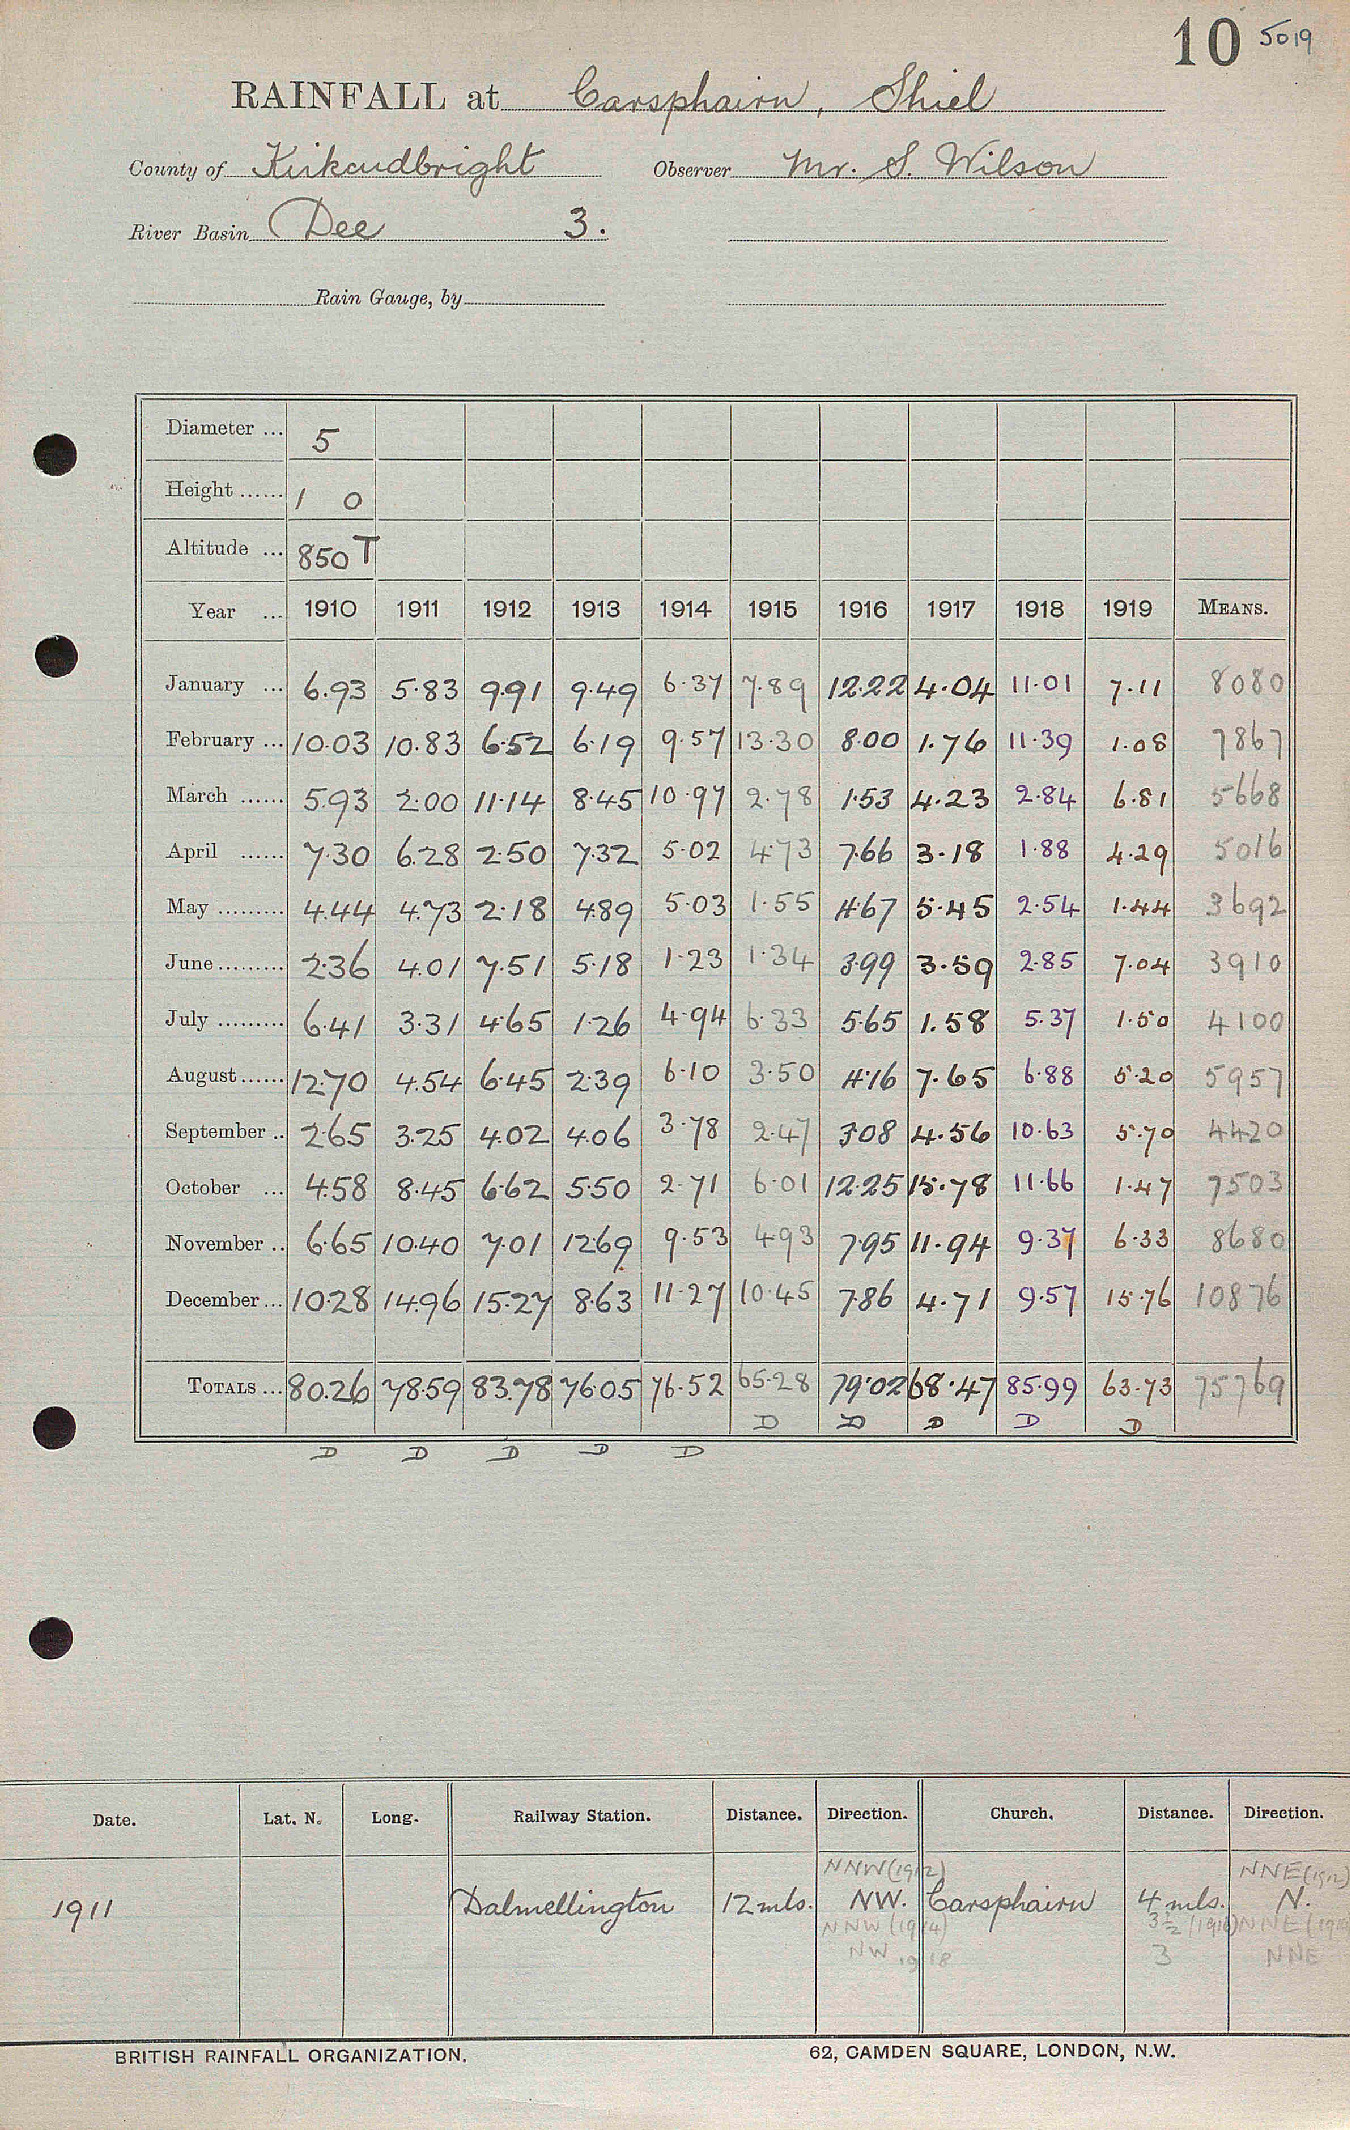 10 5019
RAINFALL at Carsphairn, Shiel
County of Kirkcudbright Observer Mr. S. Wilson
River Basin Dee 3.
Rain Gauge, by
Diameter ... 5
Height ...... 1 0
Altitude ... 850 T
Year ... 1910 1911 1912 1913 1914 1915 1916 1917 1918 1919 MEANS.
January ... 6.93 5.83 9.91 9.49 6.37 7.89 12.22 4.04 11.01 7.11 8080
February ... 10.03 10.83 6.52 6.19 9.57 13.30 8.00 1.76 11.39 1.08 7867
March ...... 5.93 2.00 11.14 8.45 10.97 2.78 1.53 4.23 2.84 6.81 5668
April ...... 7.30 6.28 2.50 7.32 5.02 4.73 7.66 3.18 1.88 4.29 5016
May ......... 4.44 4.73 2.18 4.89 5.03 1.55 4.67 5.45 2.54 1.44 3692
June ......... 2.36 4.01 7.51 5.18 1.23 1.34 3.99 3.59 2.85 7.04 3910
July ......... 6.41 3.31 4.65 1.26 4.94 6.33 5.65 1.58 5.37 1.50 4100
August ...... 12.70 4.54 6.45 2.39 6.10 3.50 4.16 7.65 6.88 5.20 5957
September .. 2.65 3.25 4.02 4.06 3.78 2.47 3.08 4.56 10.63 5.70 4420
October ... 4.58 8.45 6.62 5.50 2.71 6.01 12.25 15.78 11.66 1.47 7503
November .. 6.65 10.40 7.01 12.69 9.53 4.93 7.95 11.94 9.37 6.33 8680
December ... 10.28 14.96 15.27 8.63 11.27 10.45 7.86 4.71 9.57 15.76 10876
TOTALS ... 80.26 78.59 83.78 76.05 76.52 65.28 79.02 68.47 85.99 63.73 75769
D D D D D
D D D D D
Date. Lat. N. Long. Railway Station. Distance. Direction. Church. Distance. Direction.
NNW (1912) NNE (1912)
1911 Dalmellington 12 mls. NW. Carsphairn 4 mls. N.
NNW (1914) 3½ NNE
NW 1918 3 NNE
BRITISH RAINFALL ORGANIZATION. 62, CAMDEN SQUARE, LONDON, N.W.